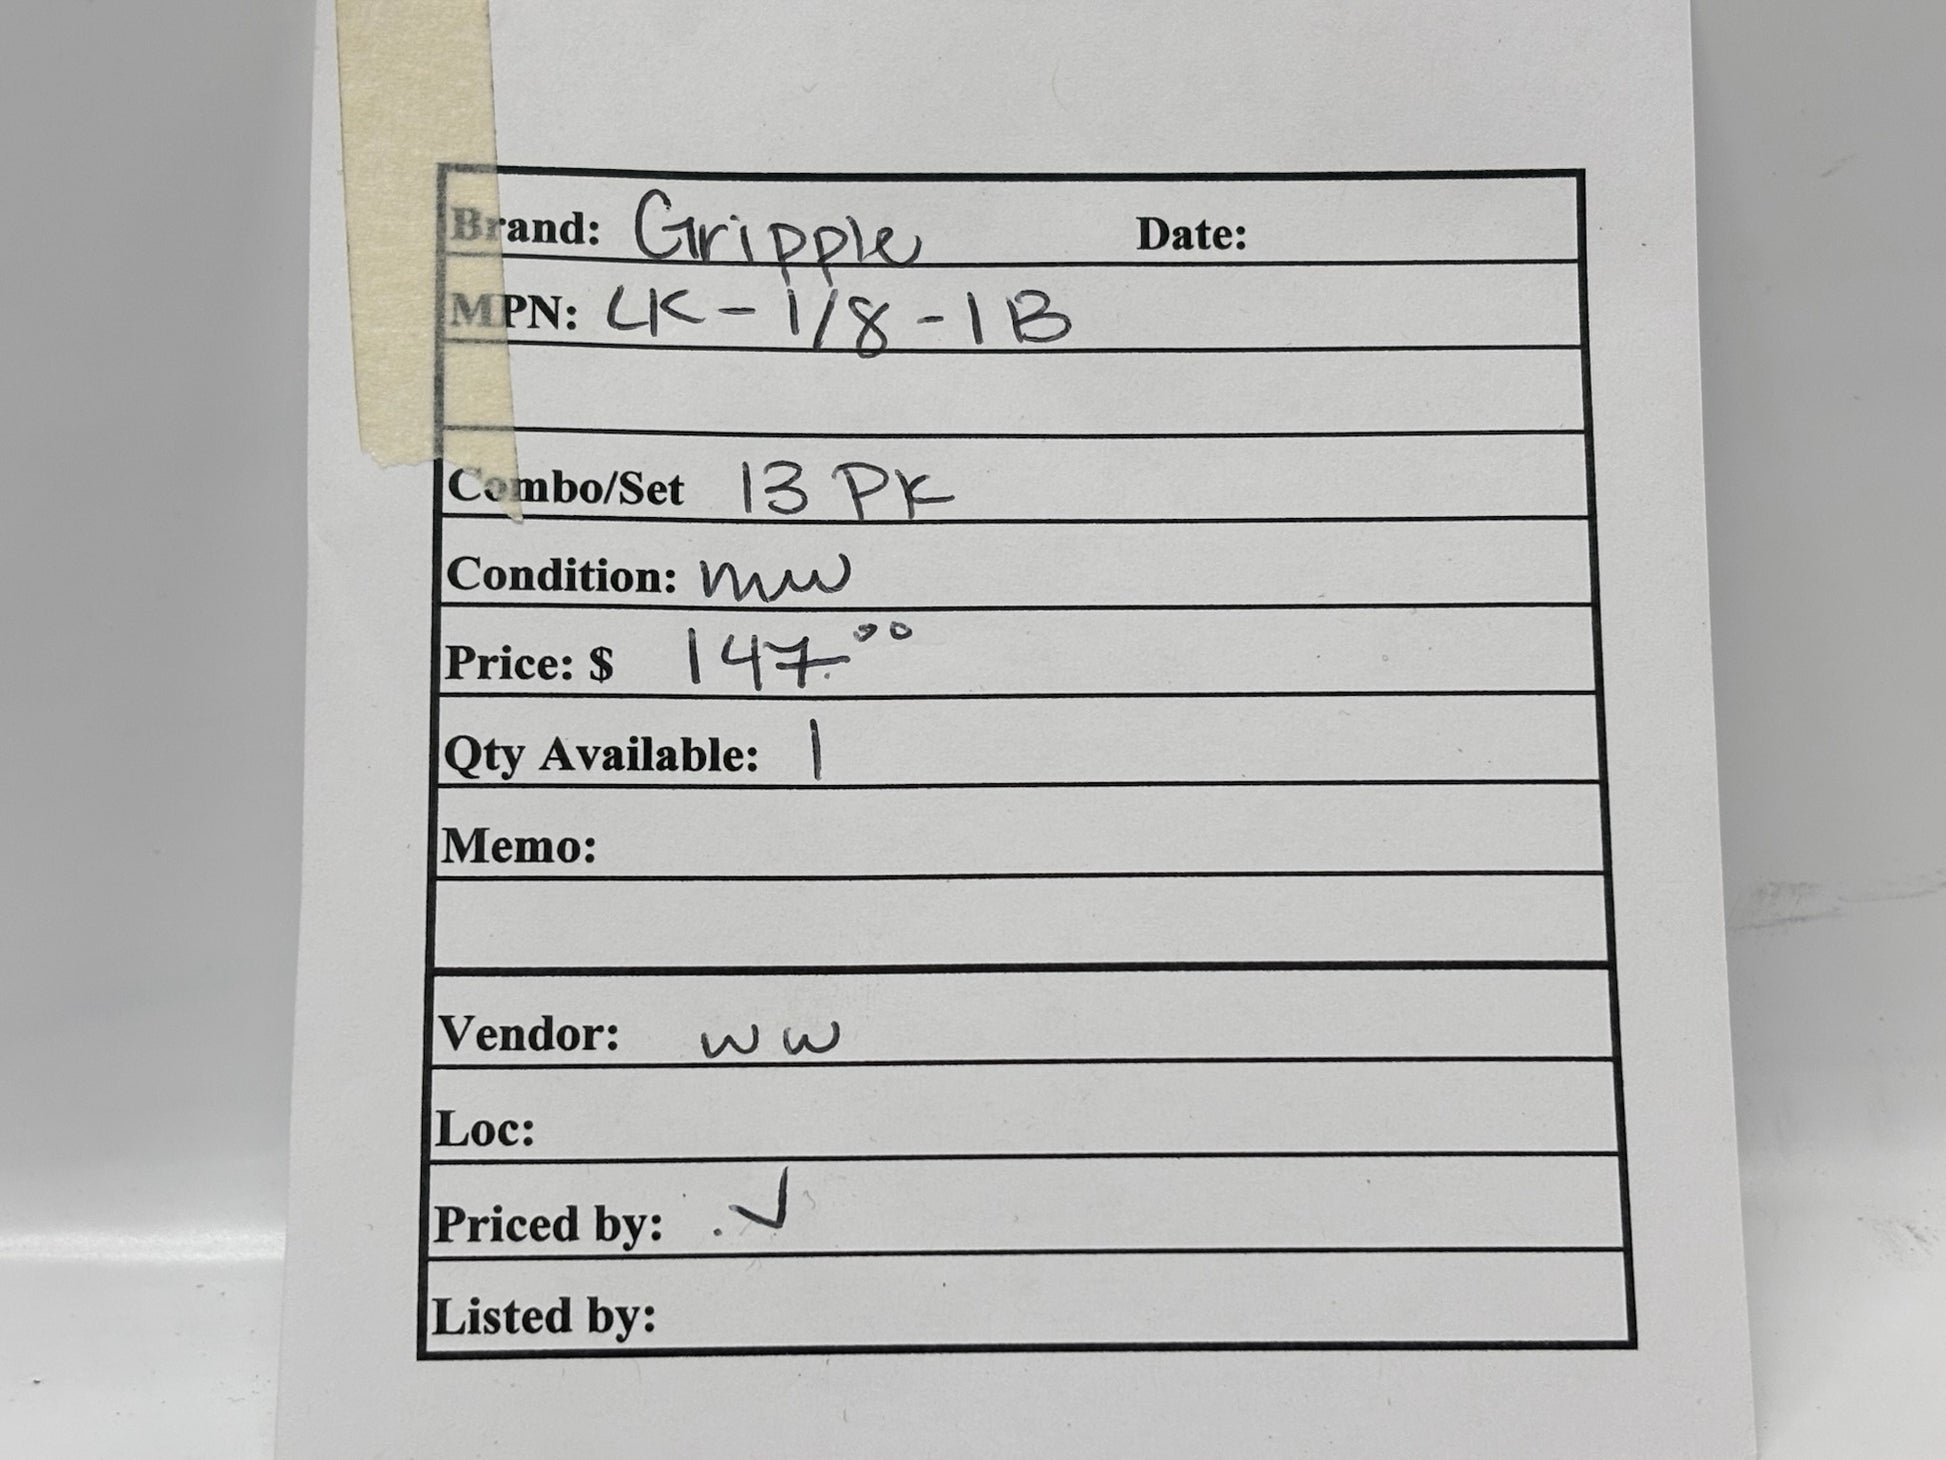 Brand: Gripple Date:
MPN: LK-1/8-1B
Combo/Set 13 PK
Condition: nw
Price: $ 147.00
Qty Available: 1
Memo:
Vendor: WW
Loc:
Priced by: ✓
Listed by: